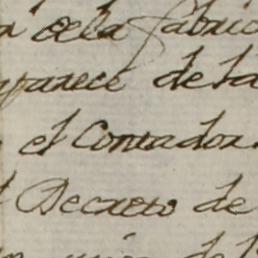 de la fabric
aparece de la
el Contador
Decreto de